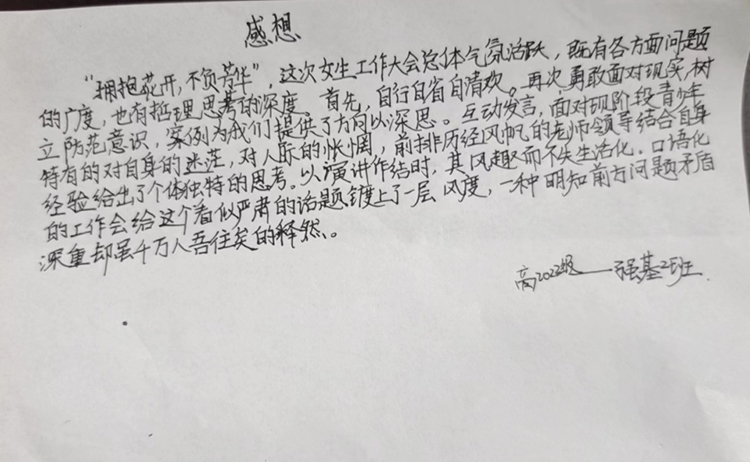 感想
“拥抱花开，不负芳华”，这次女生工作大会总体气氛活跃，既有各方面问题
的广度，也有哲理思考的深度。首先，自行自省自清欢。再次，勇敢面对现实，树
立防范意识，案例为我们提供了方向以深思。互动发言，面对现阶段青少年
特有的对自身的迷茫，对人际的怅惘，前排历经风帆的老师领导结合自身
经验给出了个体独特的思考。以演讲作结时，其风趣而不失生活化、口语化
的工作会给这个看似严肃的话题镀上了一层风度，一种明知前方问题矛盾
深重却虽千万人吾往矣的释然。
高2022级——强基2班